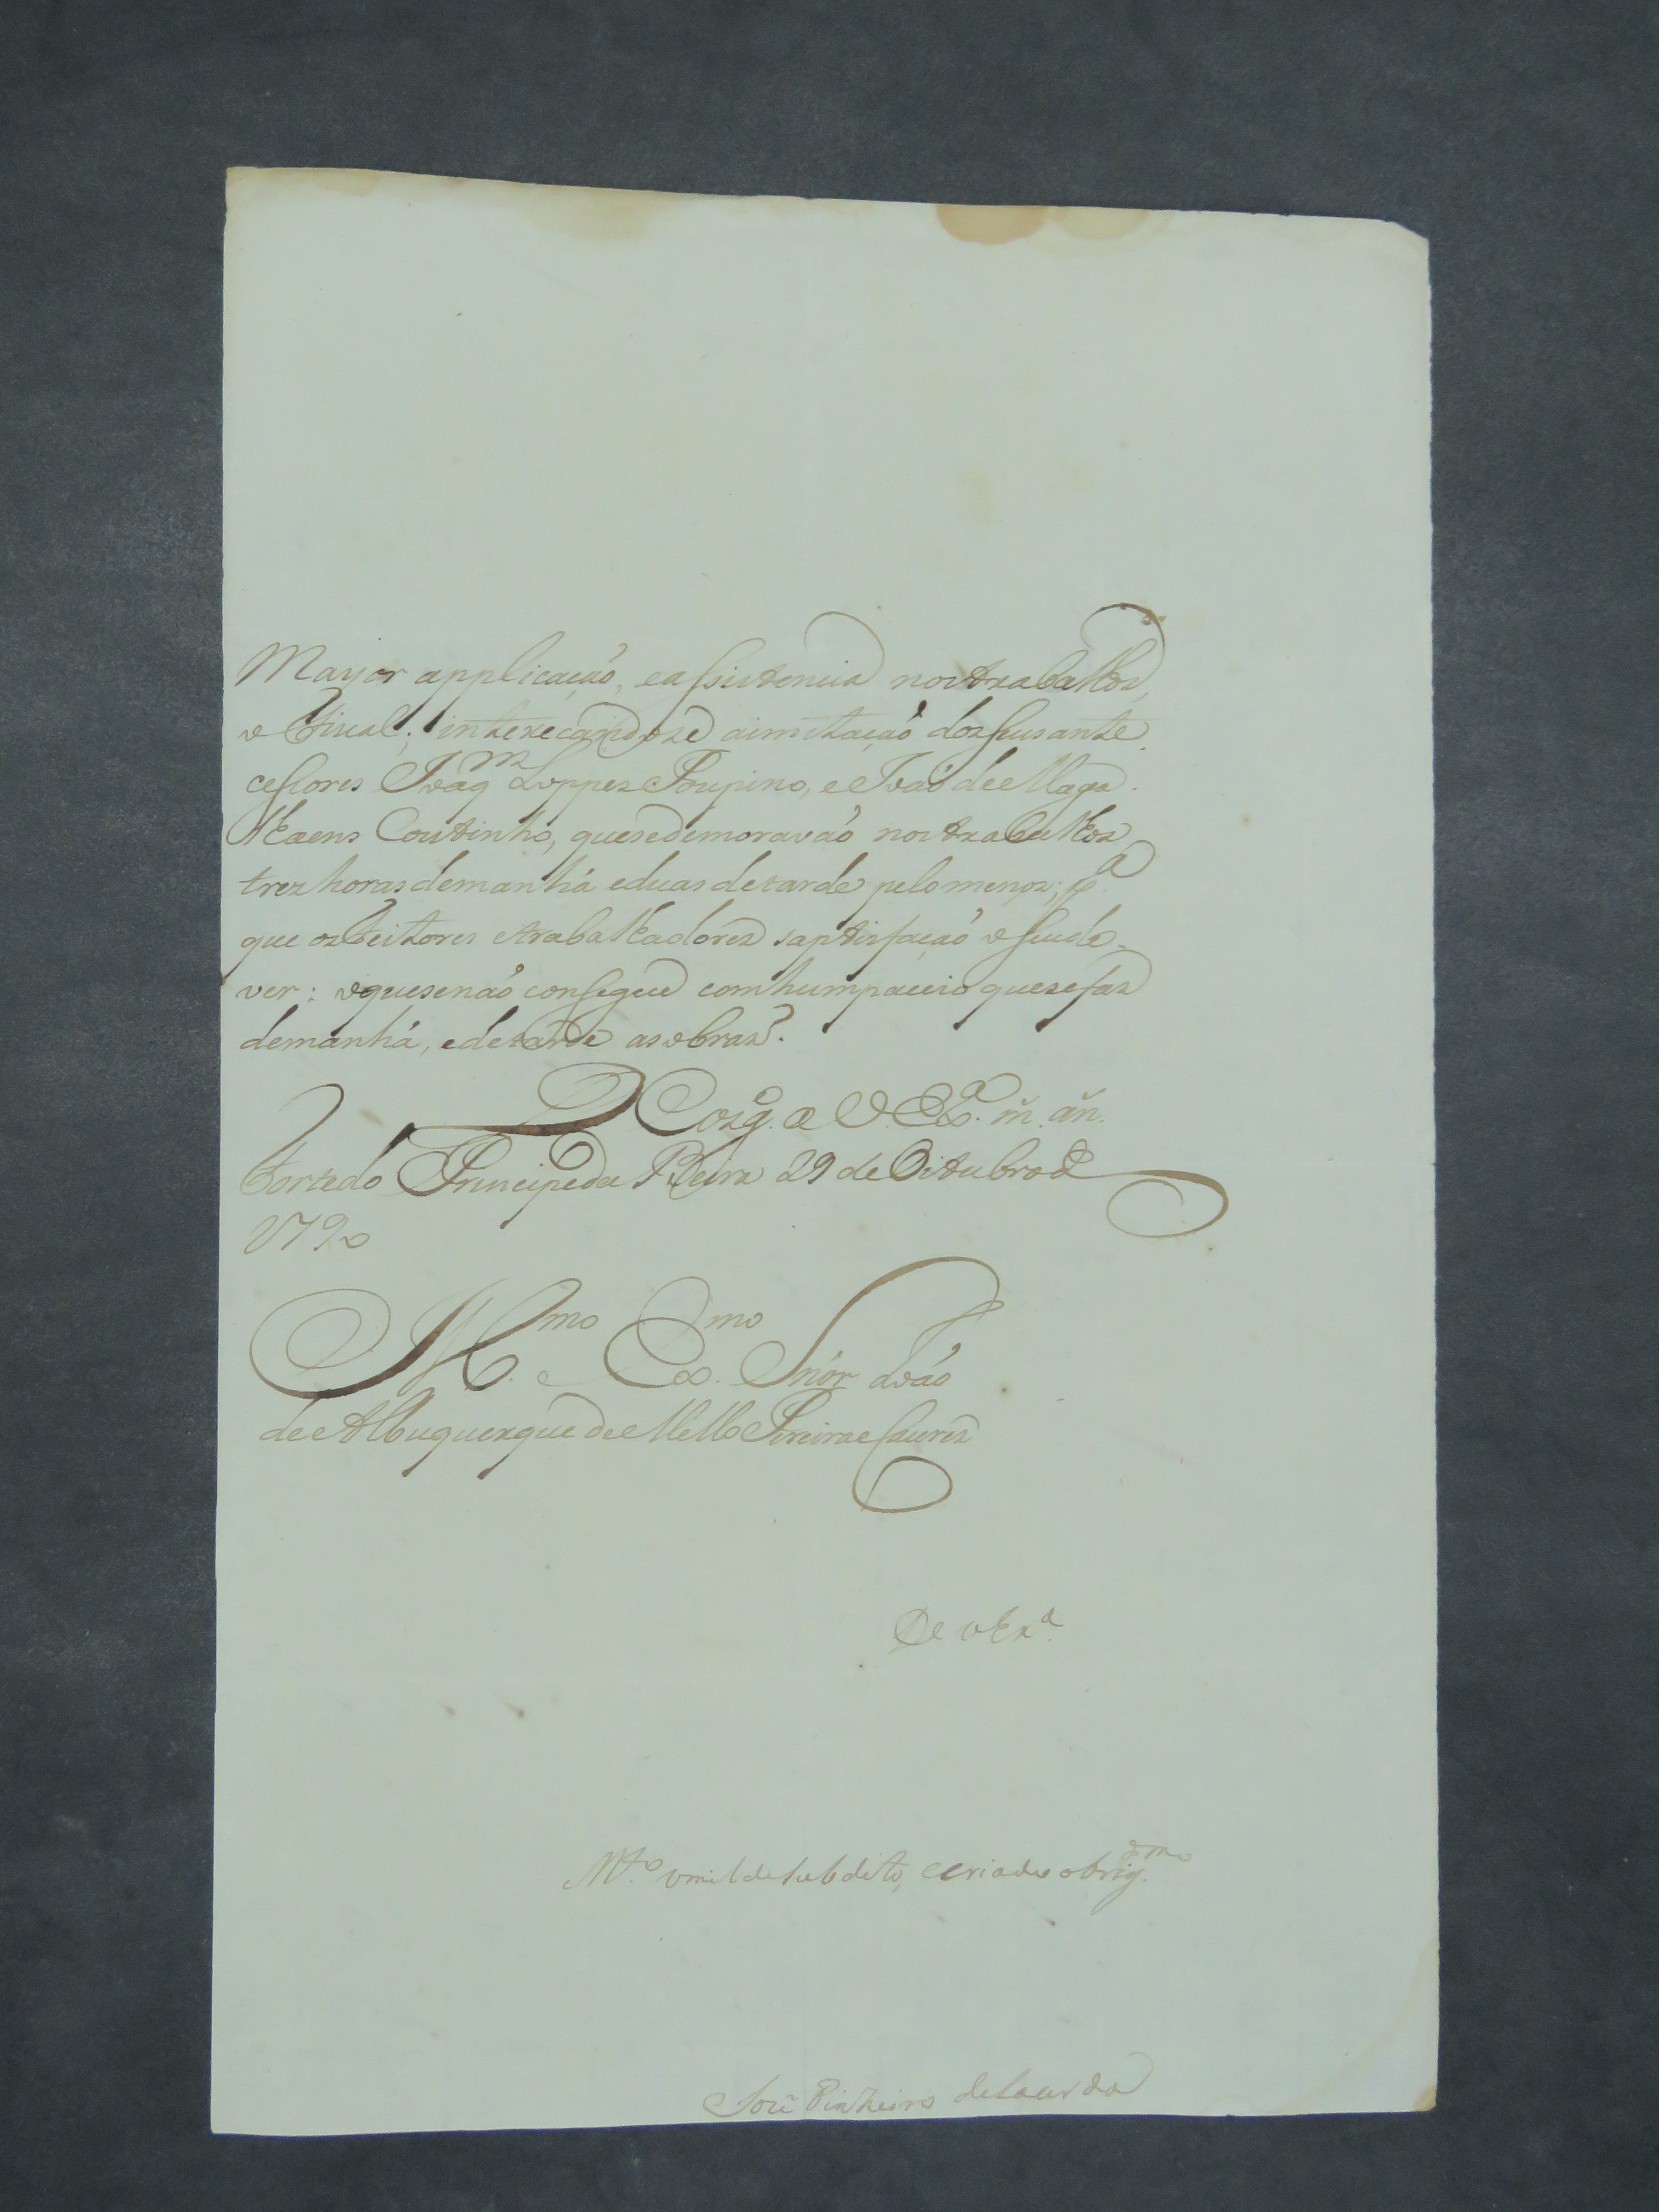 Mayor applicação, ea ssistencia nos trabalhos,
o Fiscal; interecandose aimitação dos seus ante
cessores Joaq.m Loppes Poupino, e João de Maga-
lhaens Coutinho, que se demoravão nos trabalhos
trez horas demanhá eduas de tarde pelo menos; p.a
que os Feitores etrabalhadores saptisfação o seu de-
ver: oque se não consegue com hum paceio que se fas
demanhá, ede tarde as obras.
D.s g.e a V. Ex.a m. an.
Forte do Principe da Beira 29 de Oitubro de
1790
Ill.mo e Ex.mo Snór João
de Albuquerque de Mello Pereira e Caceres
De V Ex.a
M.to umilde subdito, e criado obrig.dmo
José Pinheiro de Lacerda